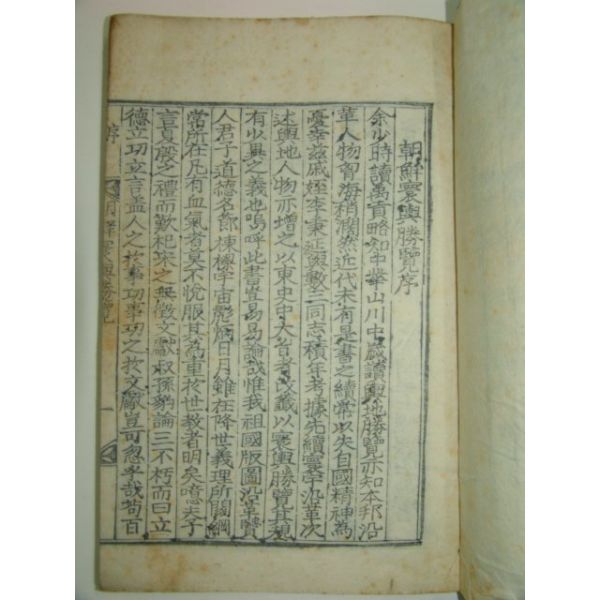 朝鮮寰輿勝覽序
余少時讀禹貢略知中華山川中歲讀輿地勝覽亦知本邦沿
革人物胷海稍濶然近代未有是書之續常以失自國精神為
憂幸玆戚姪李秉延與數三同志積年考據先續寰宇沿革次
述輿地人物亦增之以東史中大者改籤以寰輿勝覽其規
有以異之義也嗚呼此書豈易易論哉惟我祖國版圖沿革賢
人君子道德名節棟樑宇宙彪炳日月雖在降世義理所關綱
常所在凡有血氣者莫不悅服其為重於世教者明矣噫夫子
言夏殷之禮而歎杞宋之無徵文獻叔孫豹論三不朽而曰立
德立功立言盖人之於事功事功之於文獻豈可忽乎哉苟百
序
朝鮮寰輿勝覽
一